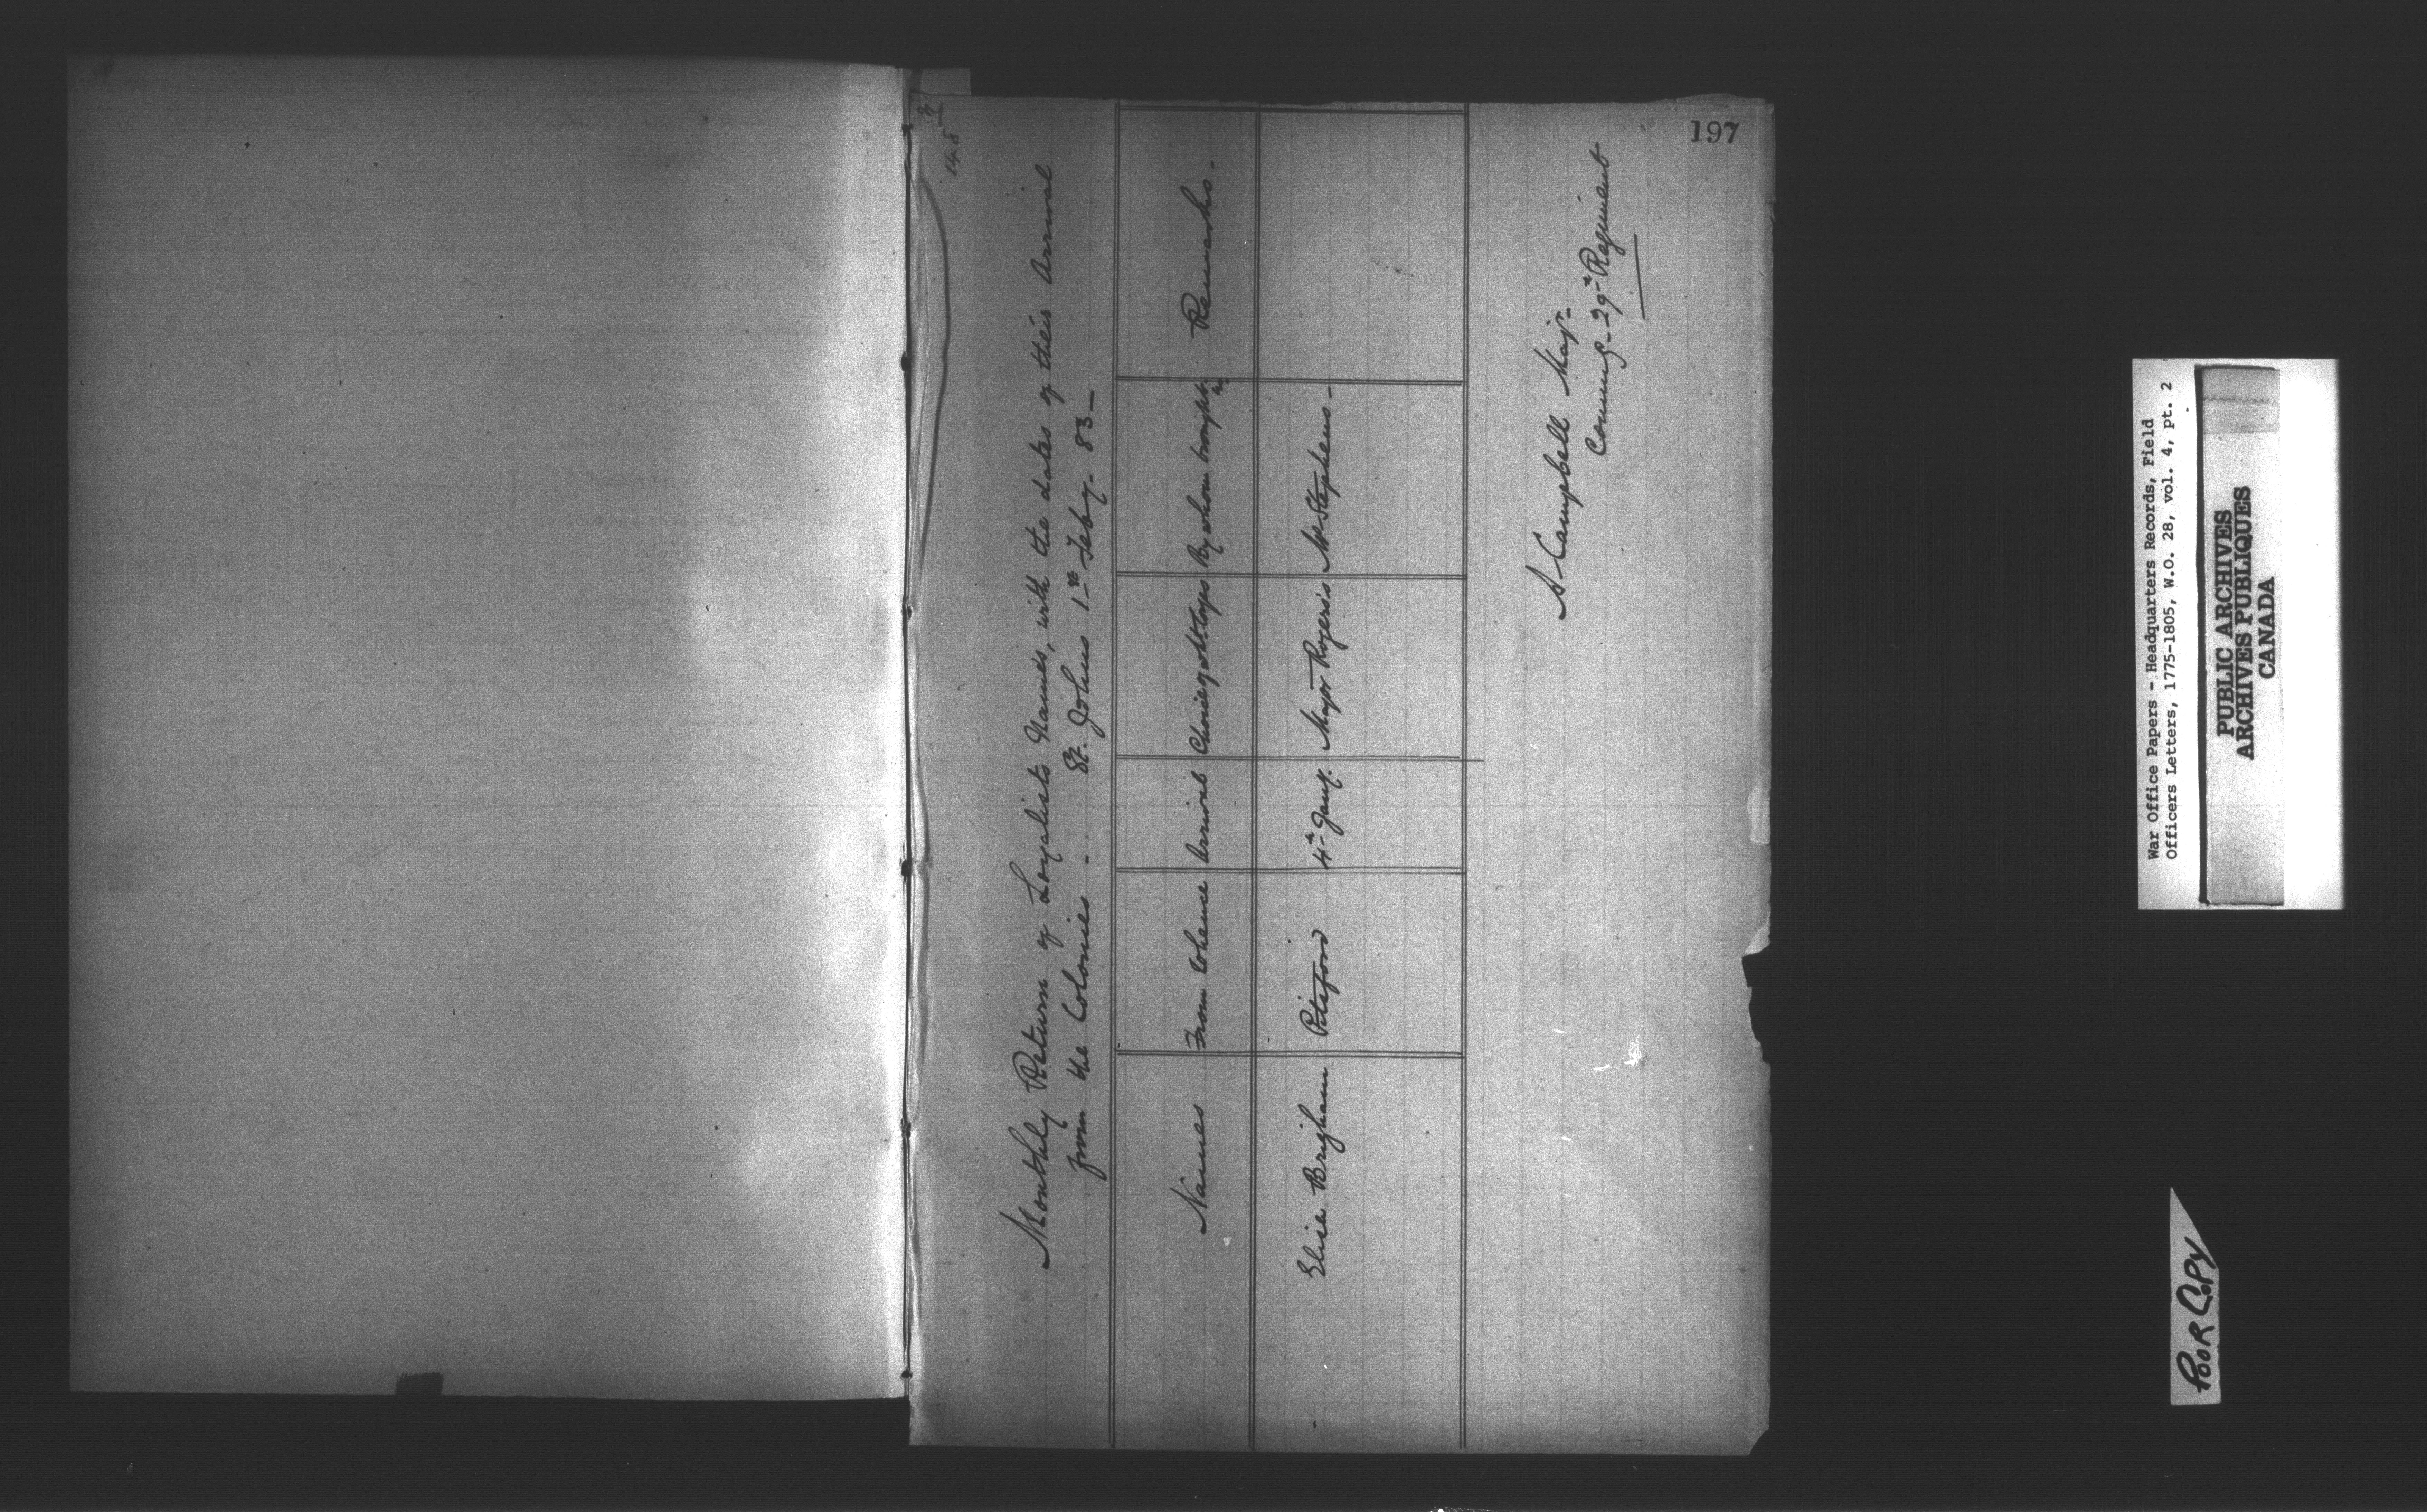 197
Monthly Return of Loyalists Names, with the dates of their Arrival
from the Colonies - St. Johns 1st Feby. 83 -
Names From Whence Arrived Choice of Corps By whom brought in Remarks -
Elisa Brigham Pitsford 4th Jany. Major Rogers's Mr Stephens -
A Campbell Majr.
Commg. 29th Regiment
War Office Papers - Headquarters Records, Field
Officers Letters, 1775-1805, W.O. 28, vol. 4, pt. 2
PUBLIC ARCHIVES
ARCHIVES PUBLIQUES
CANADA
POOR COPY